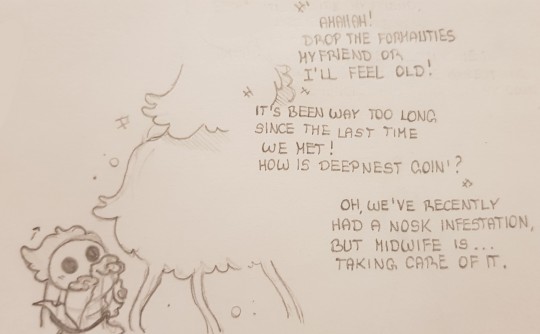 AHAHAH!
DROP THE FORMALITIES
MY FRIEND OR
I'LL FEEL OLD!
IT'S BEEN WAY TOO LONG
SINCE THE LAST TIME
WE MET!
HOW IS DEEPNEST GOIN'?
OH, WE'VE RECENTLY
HAD A NOSK INFESTATION,
BUT MIDWIFE IS...
TAKING CARE OF IT.